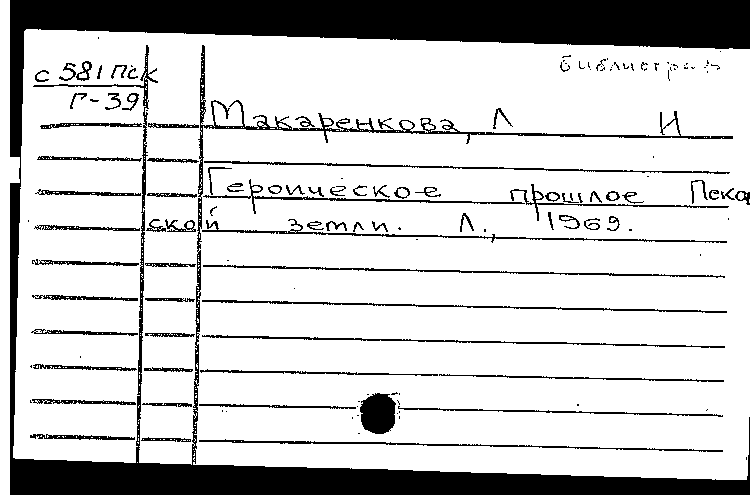 библиограф
с 581 Пск
Г-39
Макаренкова, Л И
Героическое прошлое Псков
ской земли. Л., 1969.